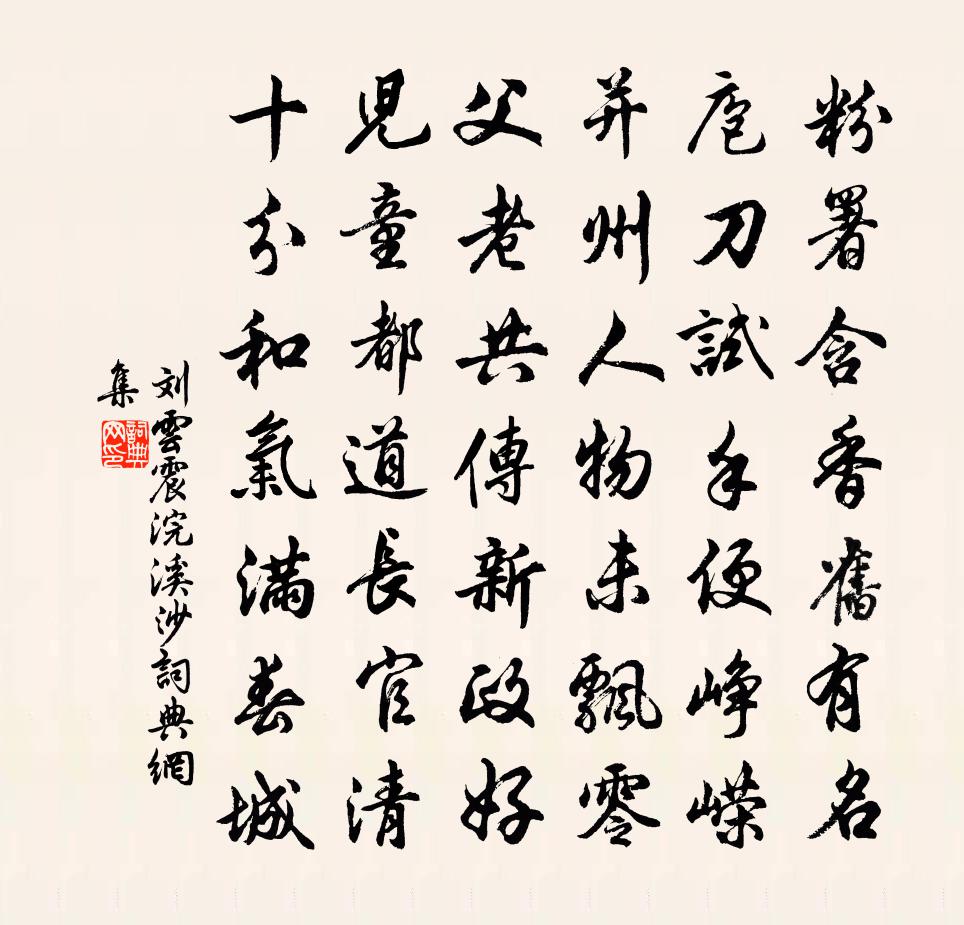 粉署含香舊有名
庖刀試手便崢嶸
并州人物未飄零
父老共傳新政好
兒童都道長官清
十分和氣滿春城
刘雲震浣溪沙詞典網
集
詞典網印